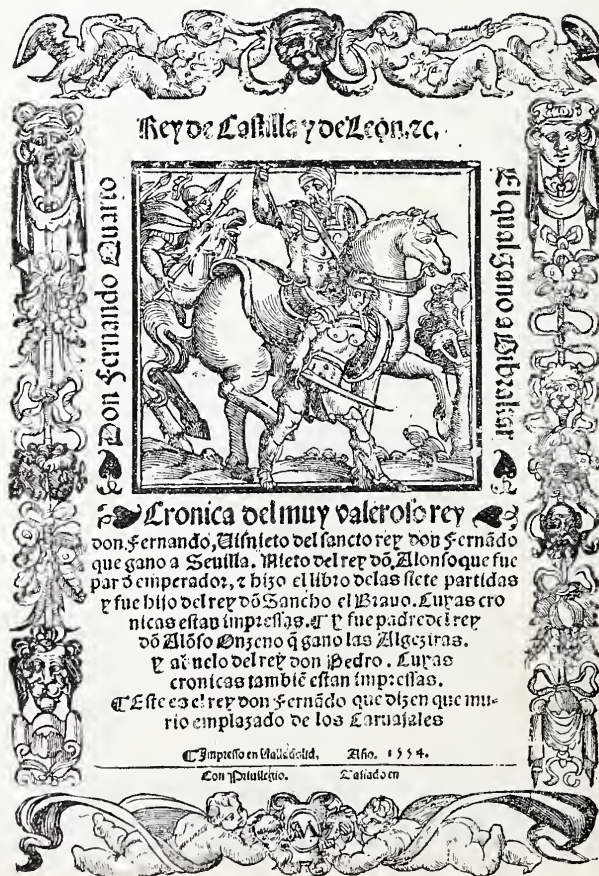 Rey de Castilla y de Leon, ⁊c.
Don Fernando Quarto
El qual gano a Gibraltar
Cronica del muy valeroso rey
don Fernando, Uisnieto del sancto rey don Fernãdo
que gano a Seuilla. Nieto del rey dõ Alonso que fue
par ð emperador, ⁊ hizo el libro delas siete partidas
y fue hijo del rey dõ Sancho el Brauo. Cuyas cro
nicas estan impressas. ¶ Y fue padre del rey
dõ Alõso Onzeno q̃ gano las Algeziras.
Y aguelo del rey don Pedro. Cuyas
cronicas tambiẽ estan impressas.
¶ Este es el rey don Fernãdo que dizen que mu-
rio emplazado de los Caruajales
¶ Impresso en Ualladolid, Año. 1554.
Con Priuilegio. Tassado en
M